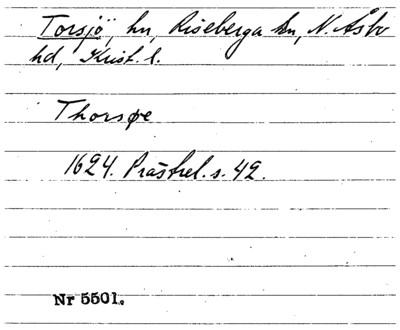 Torsjö, hn, Riseberga sn, N. Åsbo
hd, Krist. l.
Thorsøe
1624. Prästrel. s. 42.
Nr 5501.